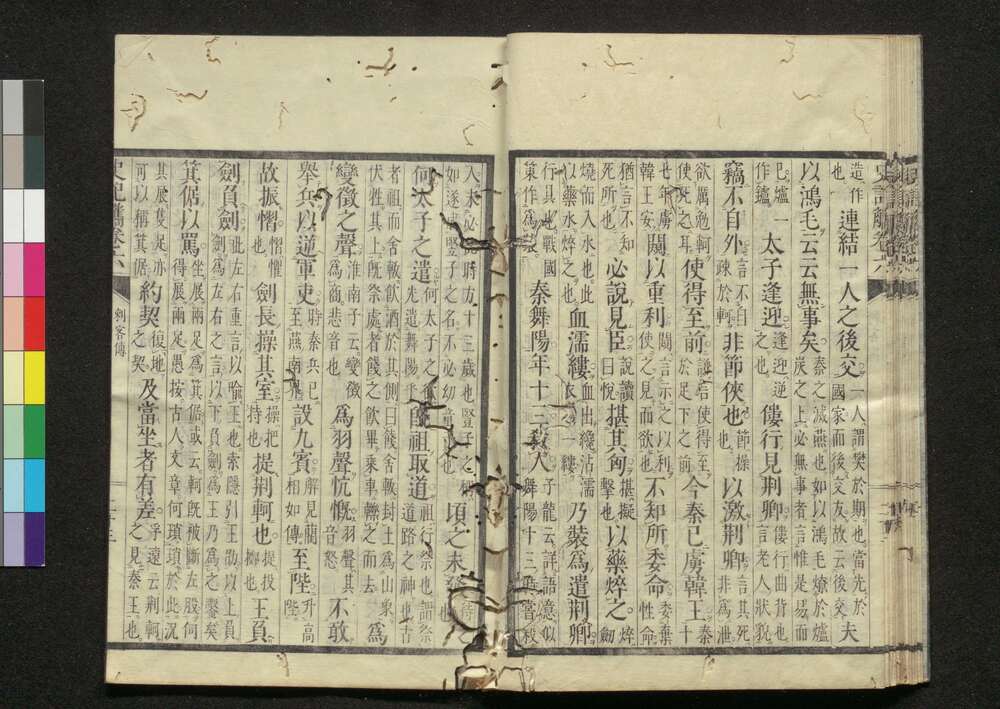 造作也連結一人之後交一人謂樊於期也當先於國家而後交友故云後交夫
以鴻毛云云無事矣秦之滅燕也如以鴻毛燎於爐炭之上必無事者言惟是易而
已爐一作鑪太子逢迎逢迎逆之也僂行見荆卿僂行曲背也言老人狀貌
竊不自外言不自疎於軻非節俠也節操也以激荆卿言其死非爲泄
欲厲勉軻使死之耳使得至前謙若使得至於足下之前今秦已虜韓王秦十
七年虜韓王安闚以重利闚言示之以利使之見而欲也不知所委命委棄性命
猶言不知死所也必說見臣說讀曰悅揕其匈揕擬擊也以藥焠之焠劒
燒而入水也此以藥水焠之也血濡縷血出纔沾濡衣一縷乃裝爲遣荆卿
行具也戰國策作爲裝秦舞陽年十三殺人子龍云詳語意似舞陽十三時嘗殺
入未必此時方十三歲也豎子之如遂豎子之名不必幼也頃之未發待也
何太子之遣何太子之先遣舞陽乎旣祖取道祖行祭也謂祭道路之神也古
者祖而舍軷飲酒於其側曰餞舍軷封土爲山象伏牲其上旣祭處者餞之飲畢乘車轢之而去爲
變徵之聲淮南子云變徵爲商悲音也爲羽聲忼慨羽聲其音怒不敢
舉兵以逆軍吏時秦兵已至燕南界設九賓解見藺相如傳至陛升高陛
故振慴慴懼也劍長操其室操把持也提荆軻也提投擲也王負
劍負劍玼左右重言以喻王也索隱引王劭以上負劍爲左右之言以下負劍爲王乃爲之聱矣
箕倨以罵坐展兩足爲箕倨或云軻旣被斷左股何得展兩足愚按古人文章何瑣瑣於此況
其展隻足亦可以稱箕倨約契復地之契及當坐者有差浮遠云荆軻之見秦王也
史記觿卷六 劍客傳